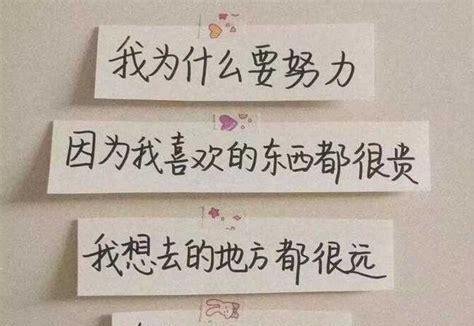 我为什么要努力
因为我喜欢的东西都很贵
我想去的地方都很远